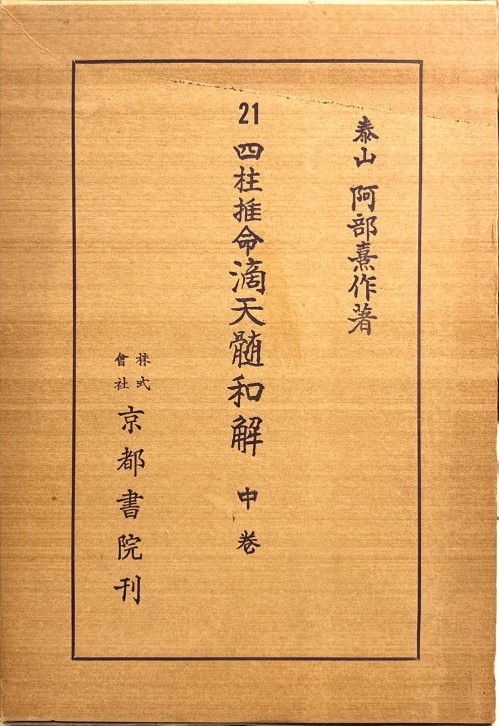 泰山 阿部熹作著
21 四柱推命滴天髄和解 中巻
株式會社 京都書院刊